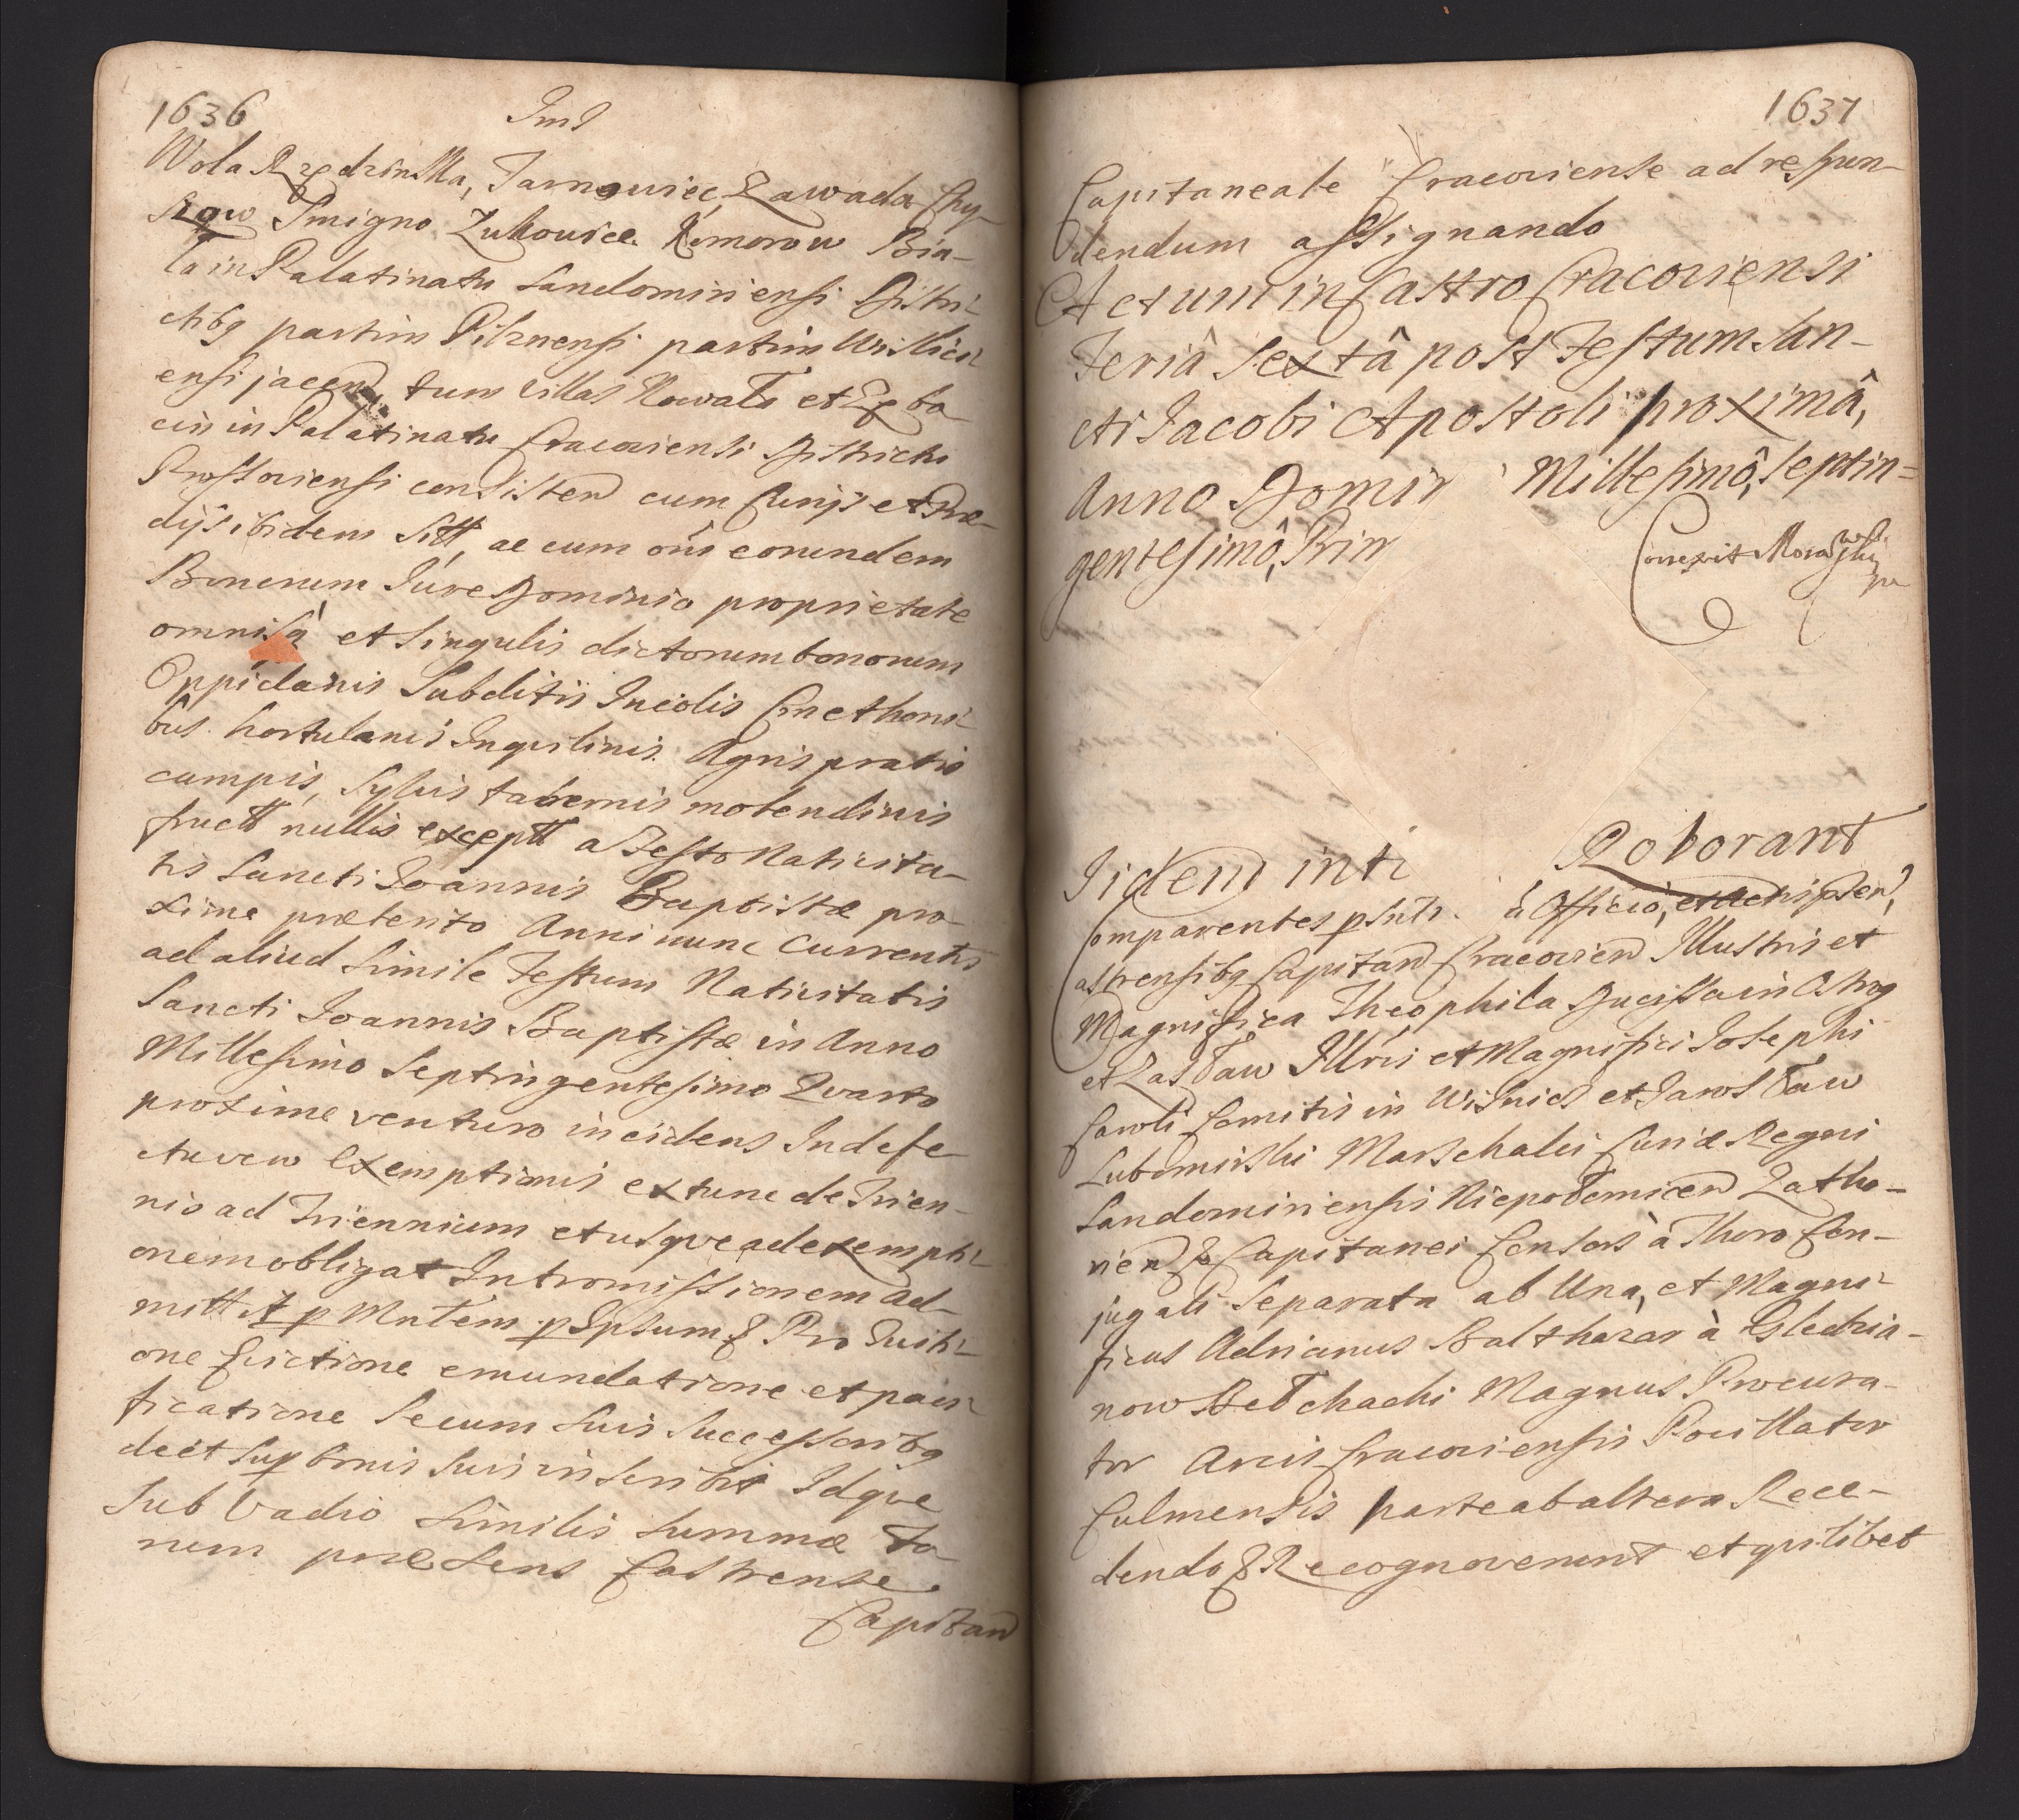 1636
Wola Rzędzinska, Tarnowiec, Zawada Chy-
szow Smigno Zukowice Komorow Bia-
la in Palatinatu Sandomiriensi Distri-
ctibq partim Pilznensi partim Vislici-
ensi jacen, tum villas Nowa et
cin in Palatinatu Cracoviensi Districtu
Prossoviensi consisten cum Curijs et Præ-
dijs ibidem Sitt, ac cum oñis eorundem
Bonorum Iure Dominio proprietate
et Singulis dictorum bonorum
Oppidanis Subditis Incolis Cmethoni-
bus hortulanis Inquilinis Agris pratis
campis, Sylvis tabernis molendinis
fructt nullis exceptt a Festo Nativita-
tis Sancti Joannis Baptistæ pro-
xime præterito Anni nunc Currentis
ad aliud Simile Festum Nativitatis
Sancti Joannis Baptistæ in Anno
Millesimo Septringentesimo Qvarto
proxime venturo incidens Indefe-
ctu vero Exemptionis extunc de Trien-
nio ad Triennium et usqve ad exempti-
onem obligat Intromissionem ad-
mitt p Mntem p Ipsum & Pro
one Evictione emundatione et paci-
ficatione Secum Suis Successoribq
deet Sup bonis Suis inscribit Idqve
Sub Vadio Similis Summæ Fo-
rum præsens Castrense
Capitan
1637
Capitaneale Cracoviense ad respon-
dendum assignando
Actum in Castro Cracoviensi
Feriâ Sextâ post Festum San-
cti Jacobi Apostoli proximâ,
Anno Domin Millesimô, Septin=
gentesimô, Prim
Correxit
Iidem inti Roborant
Comparentes psntr à Officio, et Actis psen,
Castrensibq Capitan Cracovien Illustris et
Magnifica Theophila Ducissa in Ostrog
et Zasław Illris et Magnifici Josephi
Caroli Comitis in Wisnicz et Jarosław
Lubomirski Marschalci Curiæ Regni
Sandomiriensis Niepołomicen Zatho-
rien & Capitanei Consors à Thoro Con-
jugali Separata ab Una, et Magni-
ficus Adrianus Balthazar à Gledzia-
now Bełchacki Magnus Procura-
tor Arcis Cracoviensis Pocillator
Culmensis parte ab altera Rece-
dendo & Recognoverunt et qvilibet